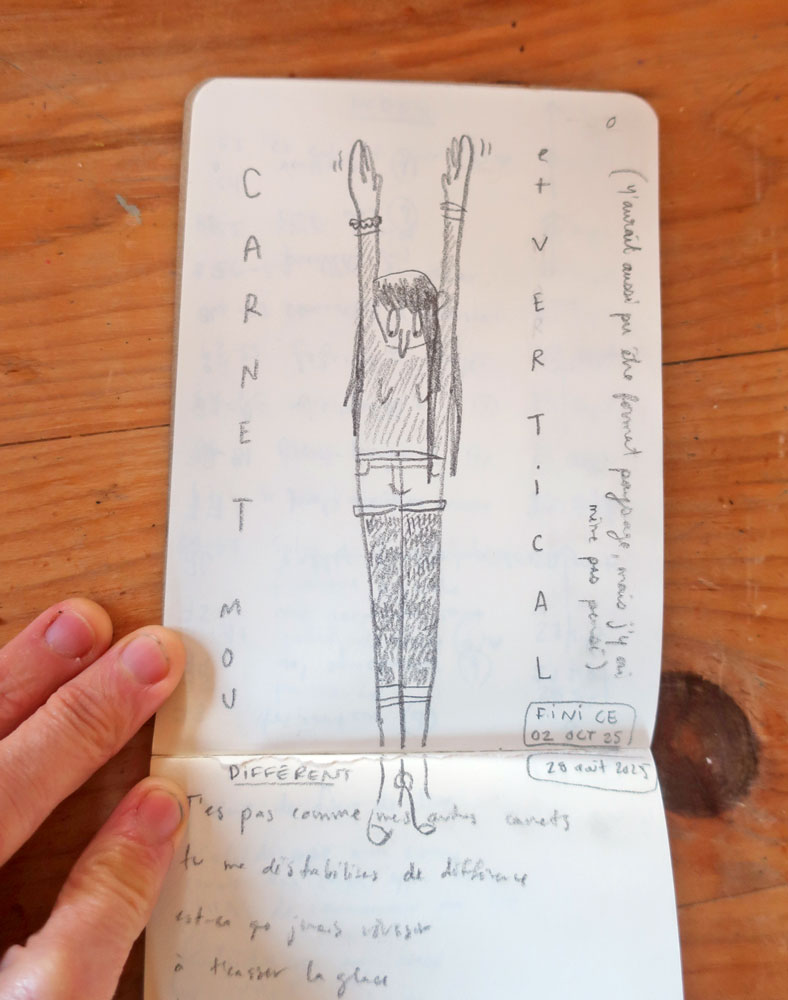 0
CARNET MOU
et VERTiCAL
(Y'aurait aussi pu être format paysage, mais j'y ai
même pas pensé)
FiNi CE
02 OCT 25
28 août 2025
DiFFÉRENT
T'es pas comme mes autres carnets
tu me déstabilises de différence
est-ce qe jamais réussir
à la glace